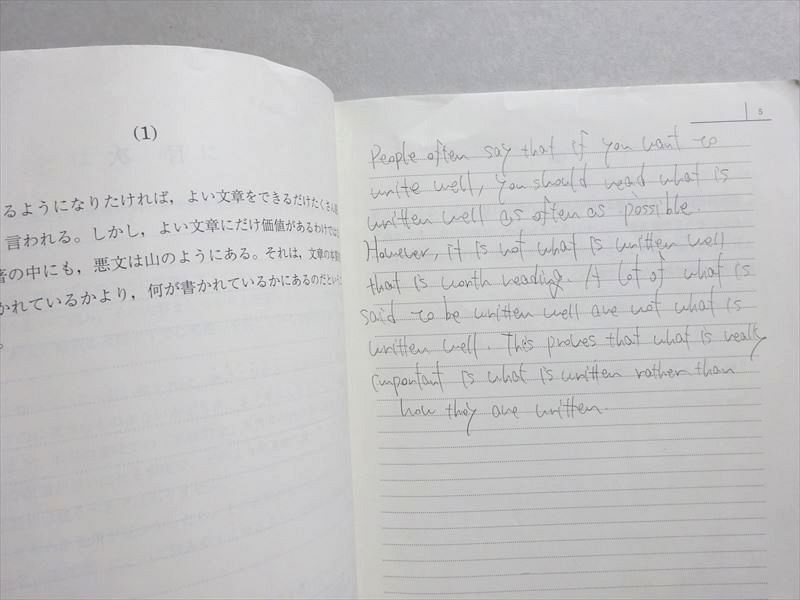 (1)
るようになりたければ，よい文章をできるだけたくさん
言われる。しかし，よい文章にだけ価値があるわけでは
の中にも，悪文は山のようにある。それは，文章の本
かれているかより，何が書かれているかにあるのだという
。
5
People often say that if you want to
write well, you should read what is
written well as often as possible.
However, it is not what is written well
that is worth reading. A lot of what is
said to be written well are not what is
written well. This proves that what is really
important is what is written rather than
how they are written.